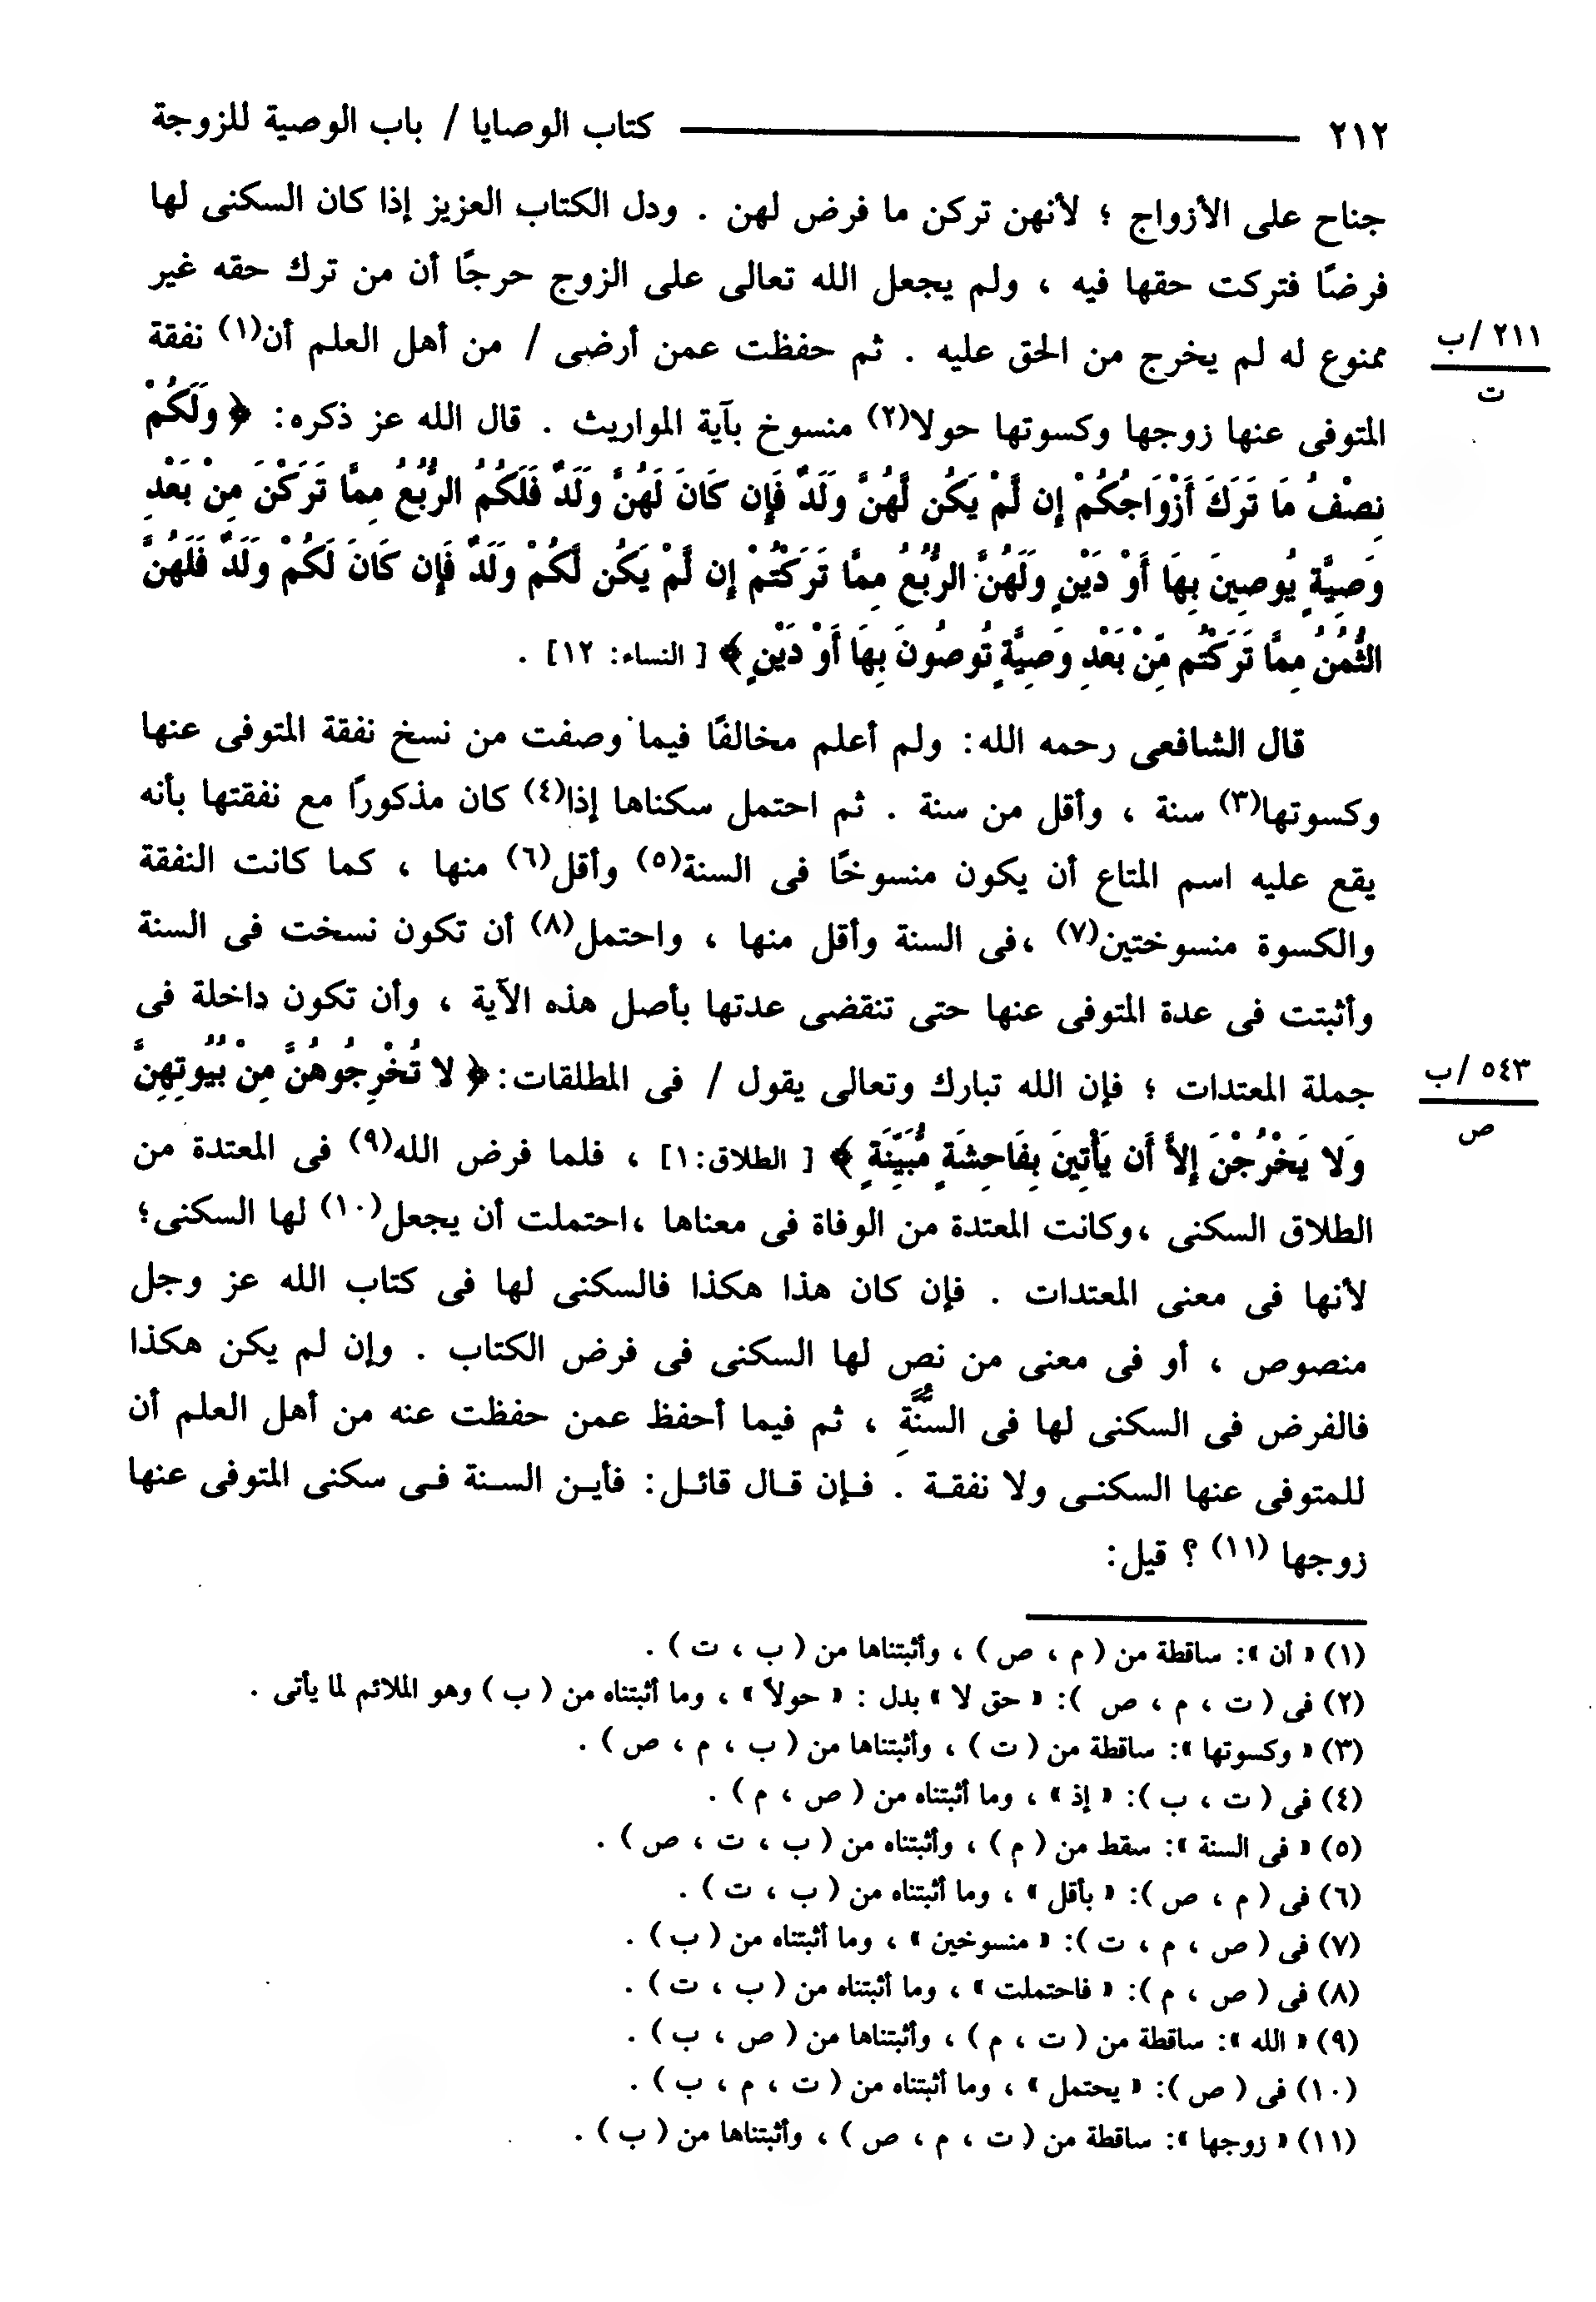 ٢١٢ ــــــــــــــــــــ كتاب الوصايا / باب الوصية للزوجة
جناح على الأزواج ؛ لأنهن تركن ما فرض لهن . ودل الكتاب العزيز إذا كان السكنى لها
فرضًا فتركت حقها فيه ، ولم يجعل الله تعالى على الزوج حرجًا أن من ترك حقه غير
ممنوع له لم يخرج من الحق عليه . ثم حفظت عمن أرضى / من أهل العلم أن(١) نفقة
٢١١ /ب
ت
المتوفى عنها زوجها وكسوتها حولا(٢) منسوخ بآية المواريث . قال الله عز ذكره: ﴿ وَلَكُمْ
نِصْفُ مَا تَرَكَ أَزْوَاجُكُمْ إِن لَّمْ يَكُن لَّهُنَّ وَلَدٌ فَإِن كَانَ لَهُنَّ وَلَدٌ فَلَكُمُ الرُّبُعُ مِمَّا تَرَكْنَ مِنْ بَعْدِ
وَصِيَّةٍ يُوصِينَ بِهَا أَوْ دَيْنٍ وَلَهُنَّ الرُّبُعُ مِمَّا تَرَكْتُمْ إِن لَّمْ يَكُن لَّكُمْ وَلَدٌ فَإِن كَانَ لَكُمْ وَلَدٌ فَلَهُنَّ
الثُّمُنُ مِمَّا تَرَكْتُم مِّنْ بَعْدِ وَصِيَّةٍ تُوصُونَ بِهَا أَوْ دَيْنٍ ﴾ [ النساء: ١٢] .
قال الشافعى رحمه الله: ولم أعلم مخالفًا فيما وصفت من نسخ نفقة المتوفى عنها
وكسوتها(٣) سنة ، وأقل من سنة . ثم احتمل سكناها إذا(٤) كان مذكورًا مع نفقتها بأنه
يقع عليه اسم المتاع أن يكون منسوخًا فى السنة(٥) وأقل(٦) منها ، كما كانت النفقة
والكسوة منسوختين(٧) ،فى السنة وأقل منها ، واحتمل(٨) أن تكون نسخت فى السنة
وأثبتت فى عدة المتوفى عنها حتى تنقضى عدتها بأصل هذه الآية ، وأن تكون داخلة فى
جملة المعتدات ؛ فإن الله تبارك وتعالى يقول / فى المطلقات: ﴿ لا تُخْرِجُوهُنَّ مِنْ بُيُوتِهِنَّ
٥٤٣ /ب
ص
وَلا يَخْرُجْنَ إِلاَّ أَن يَأْتِينَ بِفَاحِشَةٍ مُّبَيِّنَةٍ ﴾ [ الطلاق:١] ، فلما فرض الله(٩) فى المعتدة من
الطلاق السكنى ،وكانت المعتدة من الوفاة فى معناها ،احتملت أن يجعل(١٠) لها السكنى؛
لأنها فى معنى المعتدات . فإن كان هذا هكذا فالسكنى لها فى كتاب الله عز وجل
منصوص ، أو فى معنى من نص لها السكنى فى فرض الكتاب . وإن لم يكن هكذا
فالفرض فى السكنى لها فى السُّنَّةِ ، ثم فيما أحفظ عمن حفظت عنه من أهل العلم أن
للمتوفى عنها السكنـى ولا نفقـة . فـإن قـال قائـل: فأيـن السـنة فـى سكنى المتوفى عنها
زوجها (١١) ؟ قيل:
(١) « أن »: ساقطة من ( م ، ص ) ، وأثبتناها من ( ب ، ت ) .
(٢) فى ( ت ، م ، ص ): « حق لا » بدل : « حولاً » ، وما أثبتناه من ( ب ) وهو الملائم لما يأتى .
(٣) « وكسوتها »: ساقطة من ( ت ) ، وأثبتناها من ( ب ، م ، ص ) .
(٤) فى ( ت ، ب ): « إذ » ، وما أثبتناه من ( ص ، م ) .
(٥) « فى السنة »: سقط من ( م ) ، وأثبتناه من ( ب ، ت ، ص ) .
(٦) فى ( م ، ص ): « بأقل » ، وما أثبتناه من ( ب ، ت ) .
(٧) فى ( ص ، م ، ت ): « منسوخين » ، وما أثبتناه من ( ب ) .
(٨) فى ( ص ، م ): « فاحتملت » ، وما أثبتناه من ( ب ، ت ) .
(٩) « الله »: ساقطة من ( ت ، م ) ، وأثبتناها من ( ص ، ب ) .
(١٠) فى ( ص ): « يحتمل » ، وما أثبتناه من ( ت ، م ، ب ) .
(١١) « زوجها »: ساقطة من ( ت ، م ، ص ) ، وأثبتناها من ( ب ) .